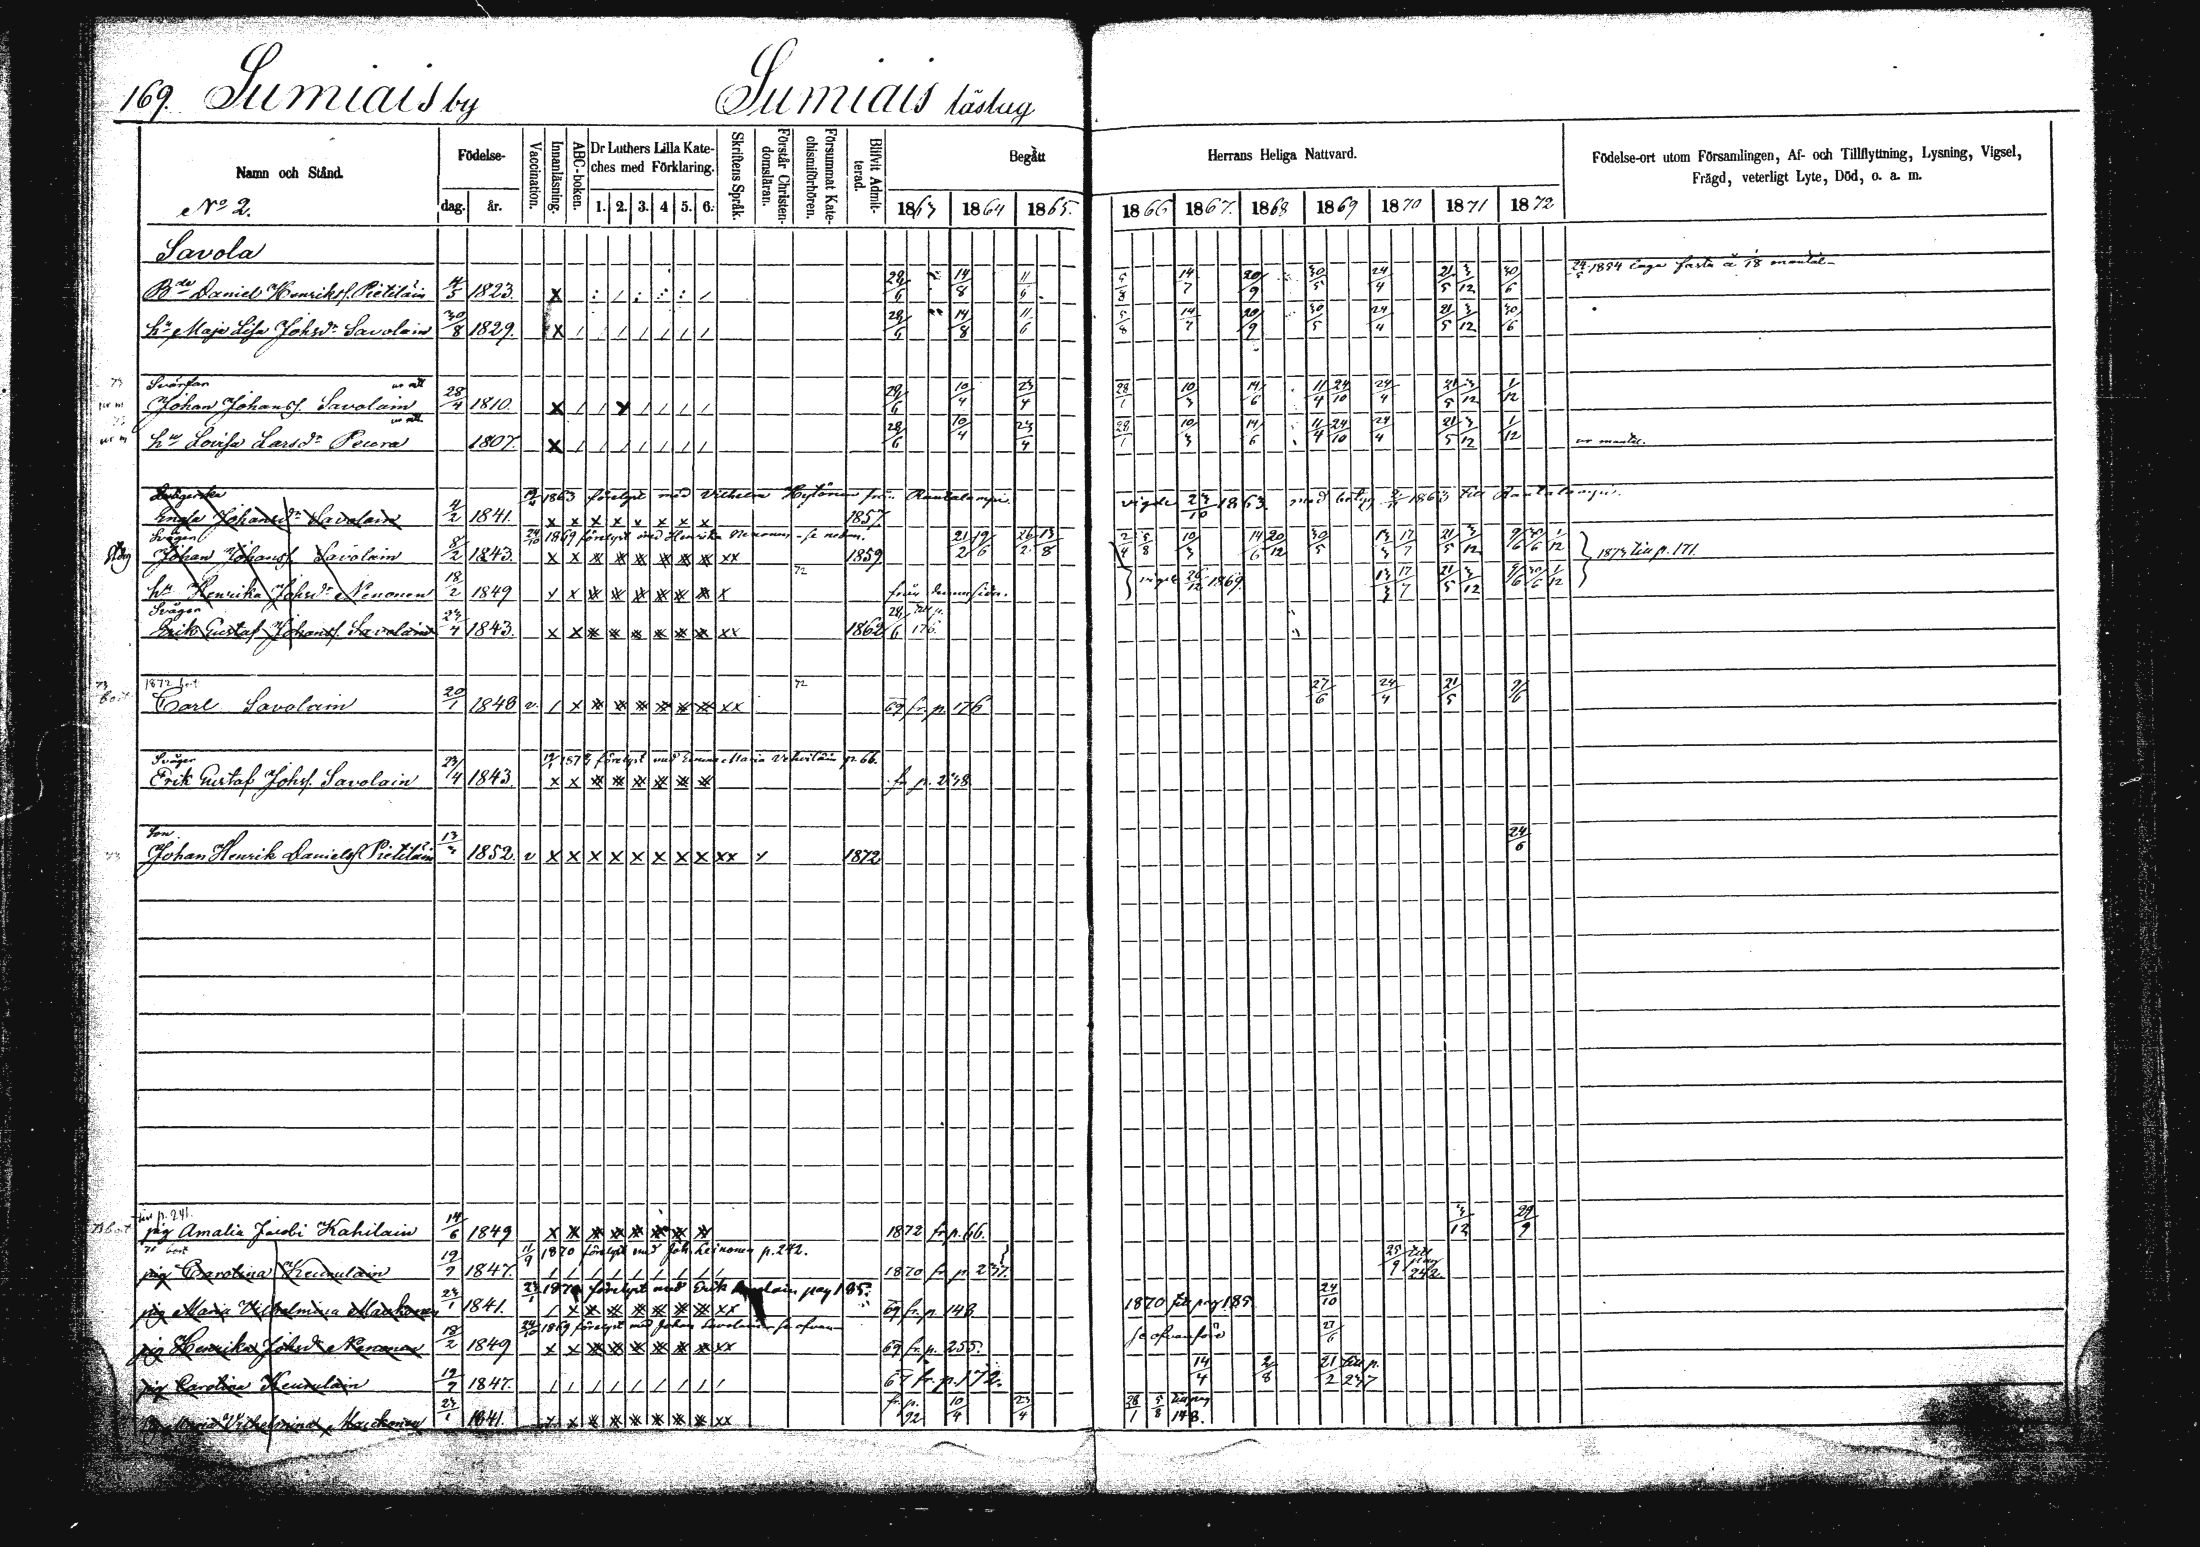 169. Sumiais by Sumiais läslag
Namn och Stånd.
No 2.
Födelse-
dag. år.
Vaccination.
Innanläsning.
ABC-boken.
Dr Luthers Lilla Kate-
ches med Förklaring.
1. 2. 3. 4 5. 6.
Skriftens Språk.
Förstår Christen-
domsläran.
Försummat Kate-
chismiförhören.
Blifvit Admit-
terad.
Begått Herrans Heliga Nattvard.
1863 1864 1865. 1866 1867. 1868 1869 1870 1871 1872
Födelse-ort utom Församlingen, Af- och Tillflyttning, Lysning, Vigsel,
Frägd, veterligt Lyte, Död, o. a. m.
Savola
Bde Daniel Henriksf. Pietiläin 4/5 1823. x 28/6 14/8 11/6 5/8 14/7 20/9 30/5 24/4 21/5 3/12 30/6 24/5 1854 laga fasta å 18 mantal
hu Maja Lisa Johsdr Savolain 30/8 1829. x 28/6 14/8 11/6 5/8 14/7 20/9 30/5 24/4 21/5 3/12 30/6
73 Svärfar
Johan Johansf. Savolain 28/4 1810. x 28/6 10/4 23/4 28/1 10/3 14/6 11/4 24/10 24/4 21/5 3/12 1/12
hu Lovisa Larsdr 1807. x 28/6 10/4 23/4 28/1 10/3 14/6 11/4 24/10 24/4 21/5 3/12 1/12 ur mantal.
1863 förelyst med Vilhelm Hytönen från Rautalampi. vigde 23/10 1863. med betyg 1863 till Rautalampi.
Engla Johansdr Savolain 4/2 1841. x x x x x x x x 1857
Svågen 24/10 1869 förelyst med Henrika Nenonen - se nedan.
Johan Johansf. Savolain 8/2 1843. x x x x x x x x xx 1859 21/2 19/6 26/2 13/8 2/4 5/8 10/3 14/6 20/12 30/5 13/3 17/7 21/5 3/12 9/6 30/6 1/12 1873 till p. 171.
hu Henrika Johsdr Nenonen 18/2 1849 x x x x x x x x x 72 från denna sida. vigde 26/12 1869. 13/3 17/7 21/5 3/12 9/6 30/6 1/12
Svågen
Erik Gustaf Johansf. Savolain 23/4 1843. x x x x x x x x xx 1862 28/6 till p. 176.
73 bort 1872 bort
Carl Savolain 20/1 1848 v. / x x x x x x x xx 72 69 fr. p. 176 27/6 24/4 21/5 9/6
Svågen förelyst med Emma Maria Vehviläin p. 66.
Erik Gustaf Johsf. Savolain 23/4 1843. x x x x x x x x fr p. 238
73 Son.
Johan Henrik Danielsf. Pietiläin 13/3 1852. v x x x x x x x x xx 1872 24/6
till p. 241.
73 bort pig Amalia Jacobi Kahilain 14/6 1849 x x x x x x x x 1872 fr p. 66. 3/12 29/9
bort 11/9 1870 förelyst med Joh. Leinonen p. 242.
pig Carolina Keurulain 19/9 1847. 1870 fr p. 237. 25/9 till pag 242.
23/1 1870 förelyst med Erik pag 185.
pig Maria Vilhelmina Manhonen 23/1 1841. / x x x x x x x xx 69 fr. p. 148 1870 till pag 185. 24/10
24/10 1869 förelyst med Johan Savolain se ofvan
pig Henrika Johsdr Nenonen 18/2 1849 x x x x x x x x xx 69 fr. p. 255. se ofvanföre 27/6
pig Carolina Keurulain 19/9 1847. 67 fr. p. 172. 14/4 2/8 21/2 till p. 237
Maria Vilhelmina 23/1 1841. x x x x x x x x xx fr. p. 192 10/4 23/4 28/1 5/8 till pag 148.